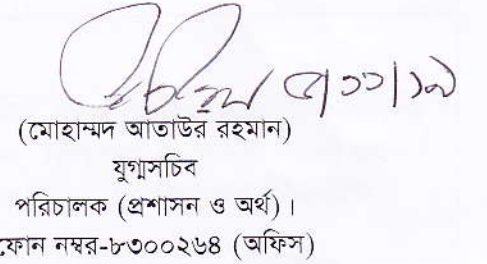 ৫|১১|১৯
(মোহাম্মদ আতাউর রহমান)
যুগ্মসচিব
পরিচালক (প্রশাসন ও অর্থ)।
ফোন নম্বর-৮৩০০২৬৪ (অফিস)